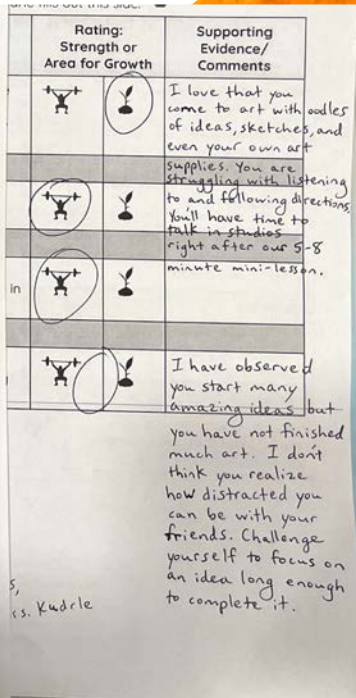 Rating:
Strength or
Area for Growth
Supporting
Evidence/
Comments
I love that you
come to art with oodles
of ideas, sketches, and
even your own art
supplies. You are
struggling with listening
to and following directions.
You'll have time to
talk in studios
right after our 5-8
minute mini-lesson.
in
I have observed
you start many
amazing ideas but
you have not finished
much art. I don't
think you realize
how distracted you
can be with your
friends. Challenge
yourself to focus on
an idea long enough
to complete it.
s,
rs. Kudrle